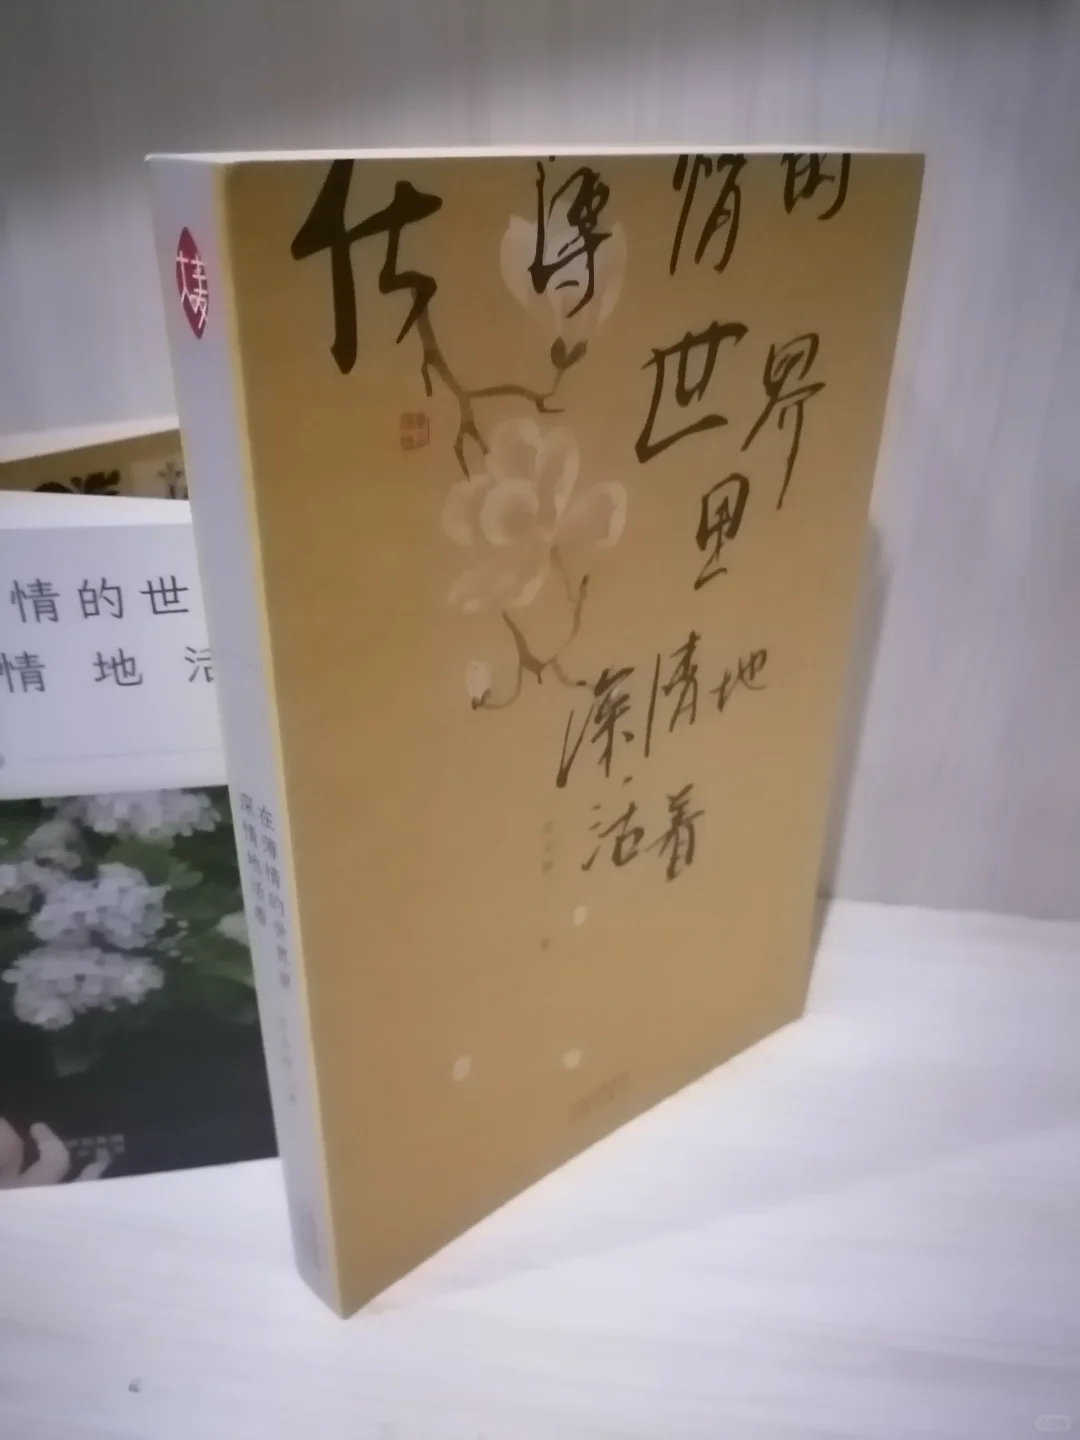 在薄情的
世界
里
深情地
活着
大麦
在薄情的世界里
深情地活着
情的世
情地活